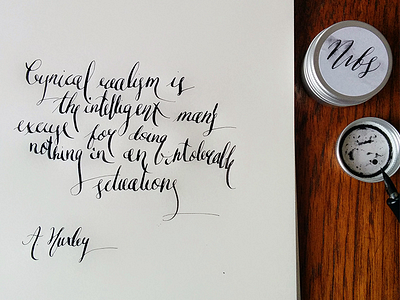 Cynical realism is
the intelligent man's
excuse for doing
nothing in an intolerable
situations
A Huxley
Nibs